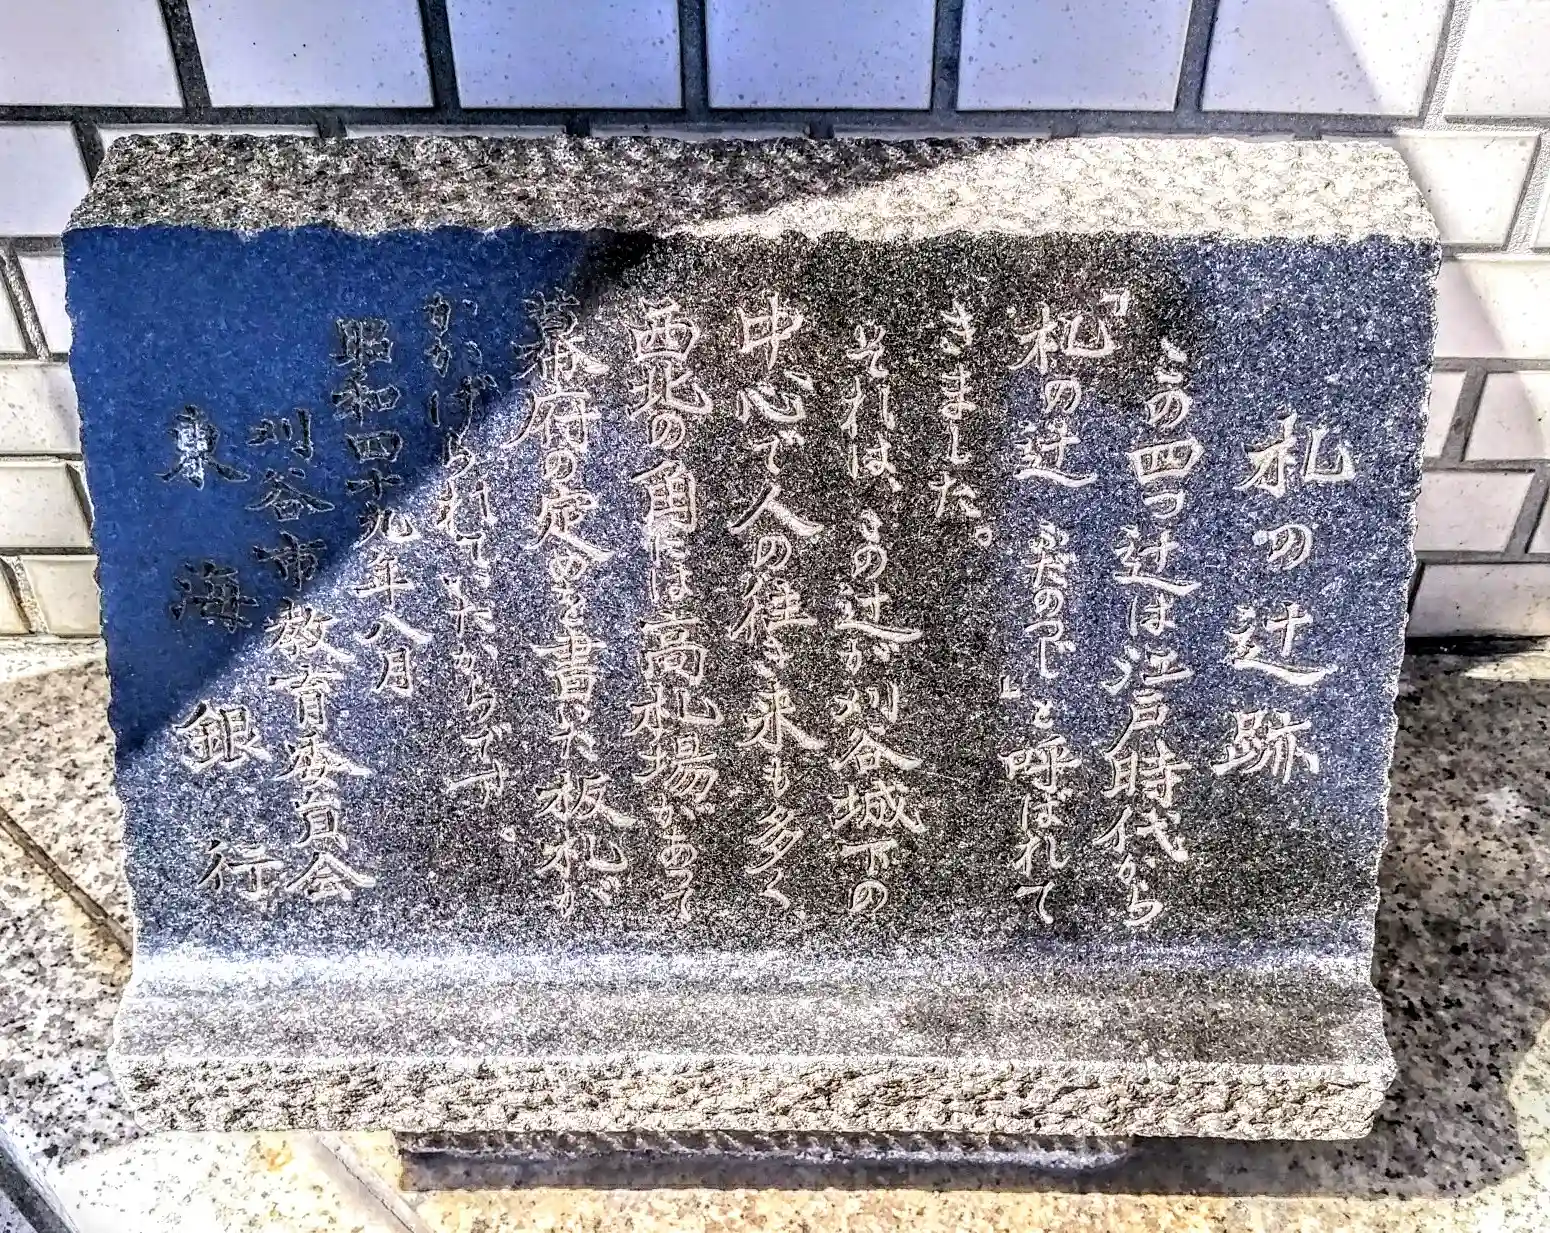 札の辻跡
この四つ辻は江戸時代から
「札の辻 ふだのつじ」と呼ばれて
きました。
それは、この辻が刈谷城下の
中心で人の往き来も多く、
西北の角には高札場があって
幕府の定めを書いた板札が
かかげられていたからです。
昭和四十九年八月
刈谷市教育委員会
東海銀行